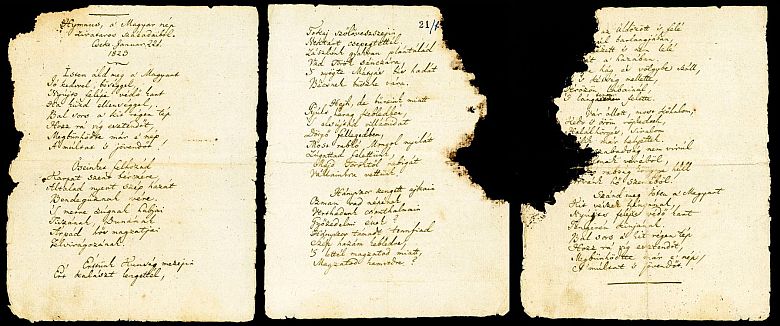 Hymnus, a' Magyar nép
zivataros századaiból.
Cseke, Január. 22d.
1823
Isten áldd meg a' Magyart
Jó kedvvel, bőséggel,
Nyújts feléje védő kart
Ha küzd ellenséggel;
Bal sors a' kit régen tép
Hozz rá víg esztendőt,
Megbűnhödte már a' nép
A' multat 's jövendőt!
Őseinket felhozád
Kárpát szent bérczére,
Általad nyert szép hazát
Bendegúznak vére.
'S merre zúgnak habjai
Tiszának, Dunának,
Árpád hős magzatjai
Felvirágozának.
Értünk Kunság mezein
Ért kalászt lengettél,
21/
Tokaj szőlővesszein
Nektárt csepegtettél.
Zászlónk gyakran plántálád
Vad Török sánczára,
'S nyögte Mátyás bús hadát
Bécsnek büszke vára.
Hajh, de bűneink miatt
Gyúlt harag kebledben,
'S elsújtád villámidat
Dörgő fellegedben,
Most rabló Mongol nyilát
Zúgattad felettünk,
Majd Töröktől rabigát
Vállainkra vettünk.
Hányszor zengett ajkain
Ozman vad népének
Vert hadunk csonthalmain
Győzedelmi ének!
Hányszor támadt tenfiad
Szép hazám kebledre,
'S lettél magzatod miatt
Magzatod hamvvedre?
az üldözött 's felé
barlangjában,
nem lelé
a' hazában.
hág és völgybe száll,
mellette,
Vérözön lábainál,
'S lángtenger felette.
Vár állott, most kőhalom,
Kedv 's öröm röpkedtek,
Halálhörgés, siralom
már helyettek.
szabadság nem virúl
véréből,
rabság könnye hull
hő szeméből.
Szánd meg Isten a' Magyart
Kit vészek hányának,
Nyújts feléje védő kart
Tengerén kínjának.
Bal sors a' kit régen tép
Hozz rá víg esztendőt,
Megbűnhödte már a' nép
A' multat 's jövendőt.